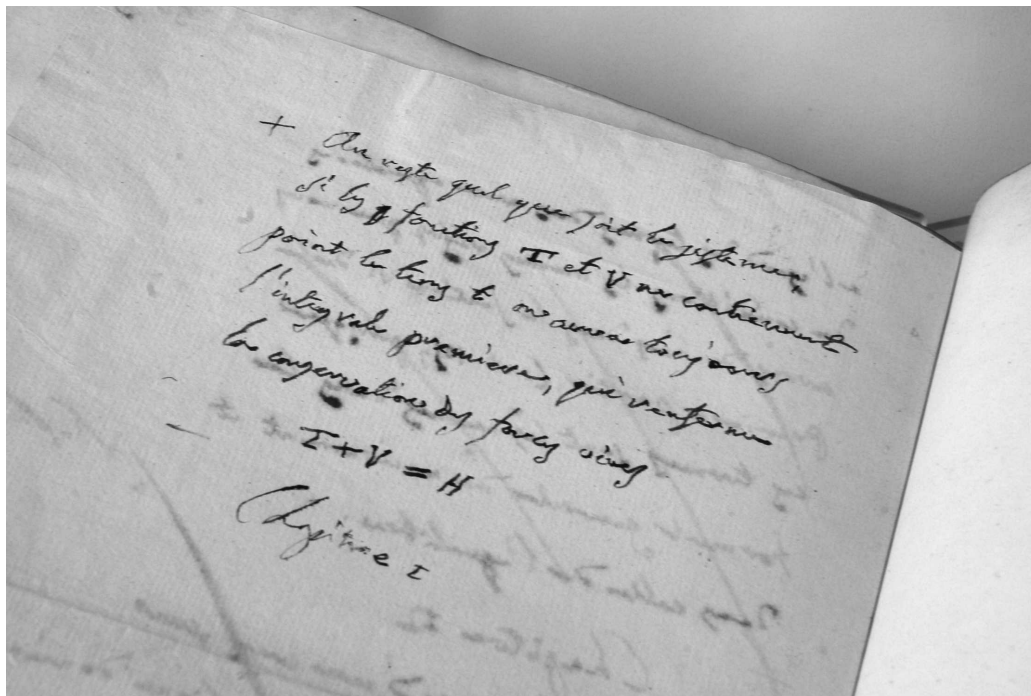 + Au reste quel que soit le sisteme,
si les fonctions T et V ne contiennent
point le tems t on aura toujours
l'integrale premiere, qui renferme
la conservation des forces vives
T + V = H
Chapitre I